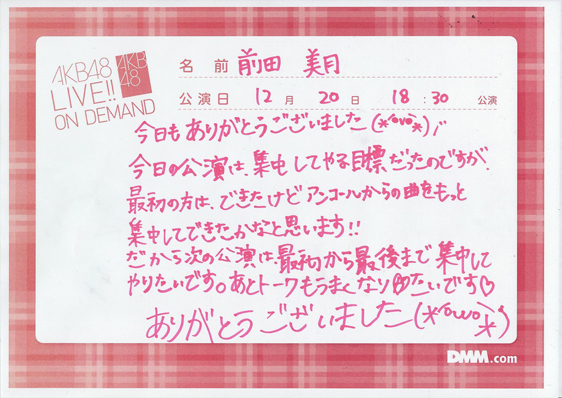 AKB48
LIVE!!
ON DEMAND
AKB
48
名前 前田 美月
公演日 12月 20日 18:30 公演
今日もありがとうございました(*^ovo^*)/"
今日の公演は、集中してやる目標だったのですが、
最初の方は、できたけどアンコールからの曲をもっと
集中してできたかなと思います!!
だから次の公演は、最初から最後まで集中して
やりたいです。あとトークもうまくなり♡たいです♡
ありがとうございました(*^ovo^*)
DMM.com